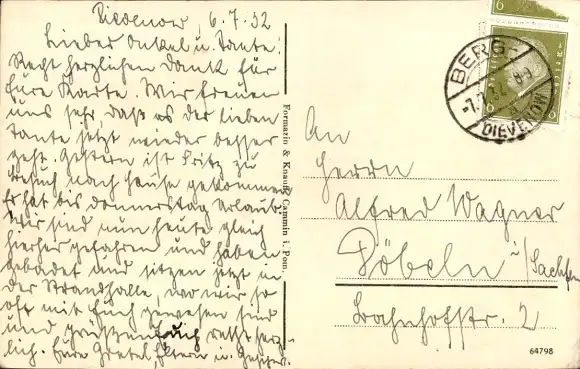 Dievenow, 6.7.32
Lieber Onkel u. Tante!
Recht herzlichen Dank für
Eure Karte. Wir freuen
uns sehr, daß es der lieben
Tante jetzt wieder besser
geht. Gestern ist Fritz zu
Besuch nach Hause gekommen.
Er hat bis Donnerstag Urlaub.
Wir sind nun heute gleich
hierher gefahren und haben
gebadet und sitzen jetzt in
der Strandhalle, wo wir so
oft mit Euch gewesen sind
und grüßen Euch recht herz-
lich. Eure Gretel, Eltern u. Geschw.
Formazin & Knauff, Cammin i. Pom.
BERG-
DIEVENOW
6
An
Herrn
Alfred Wagner
Döbeln i/Sachsen
Bahnhofstr. 2
64798